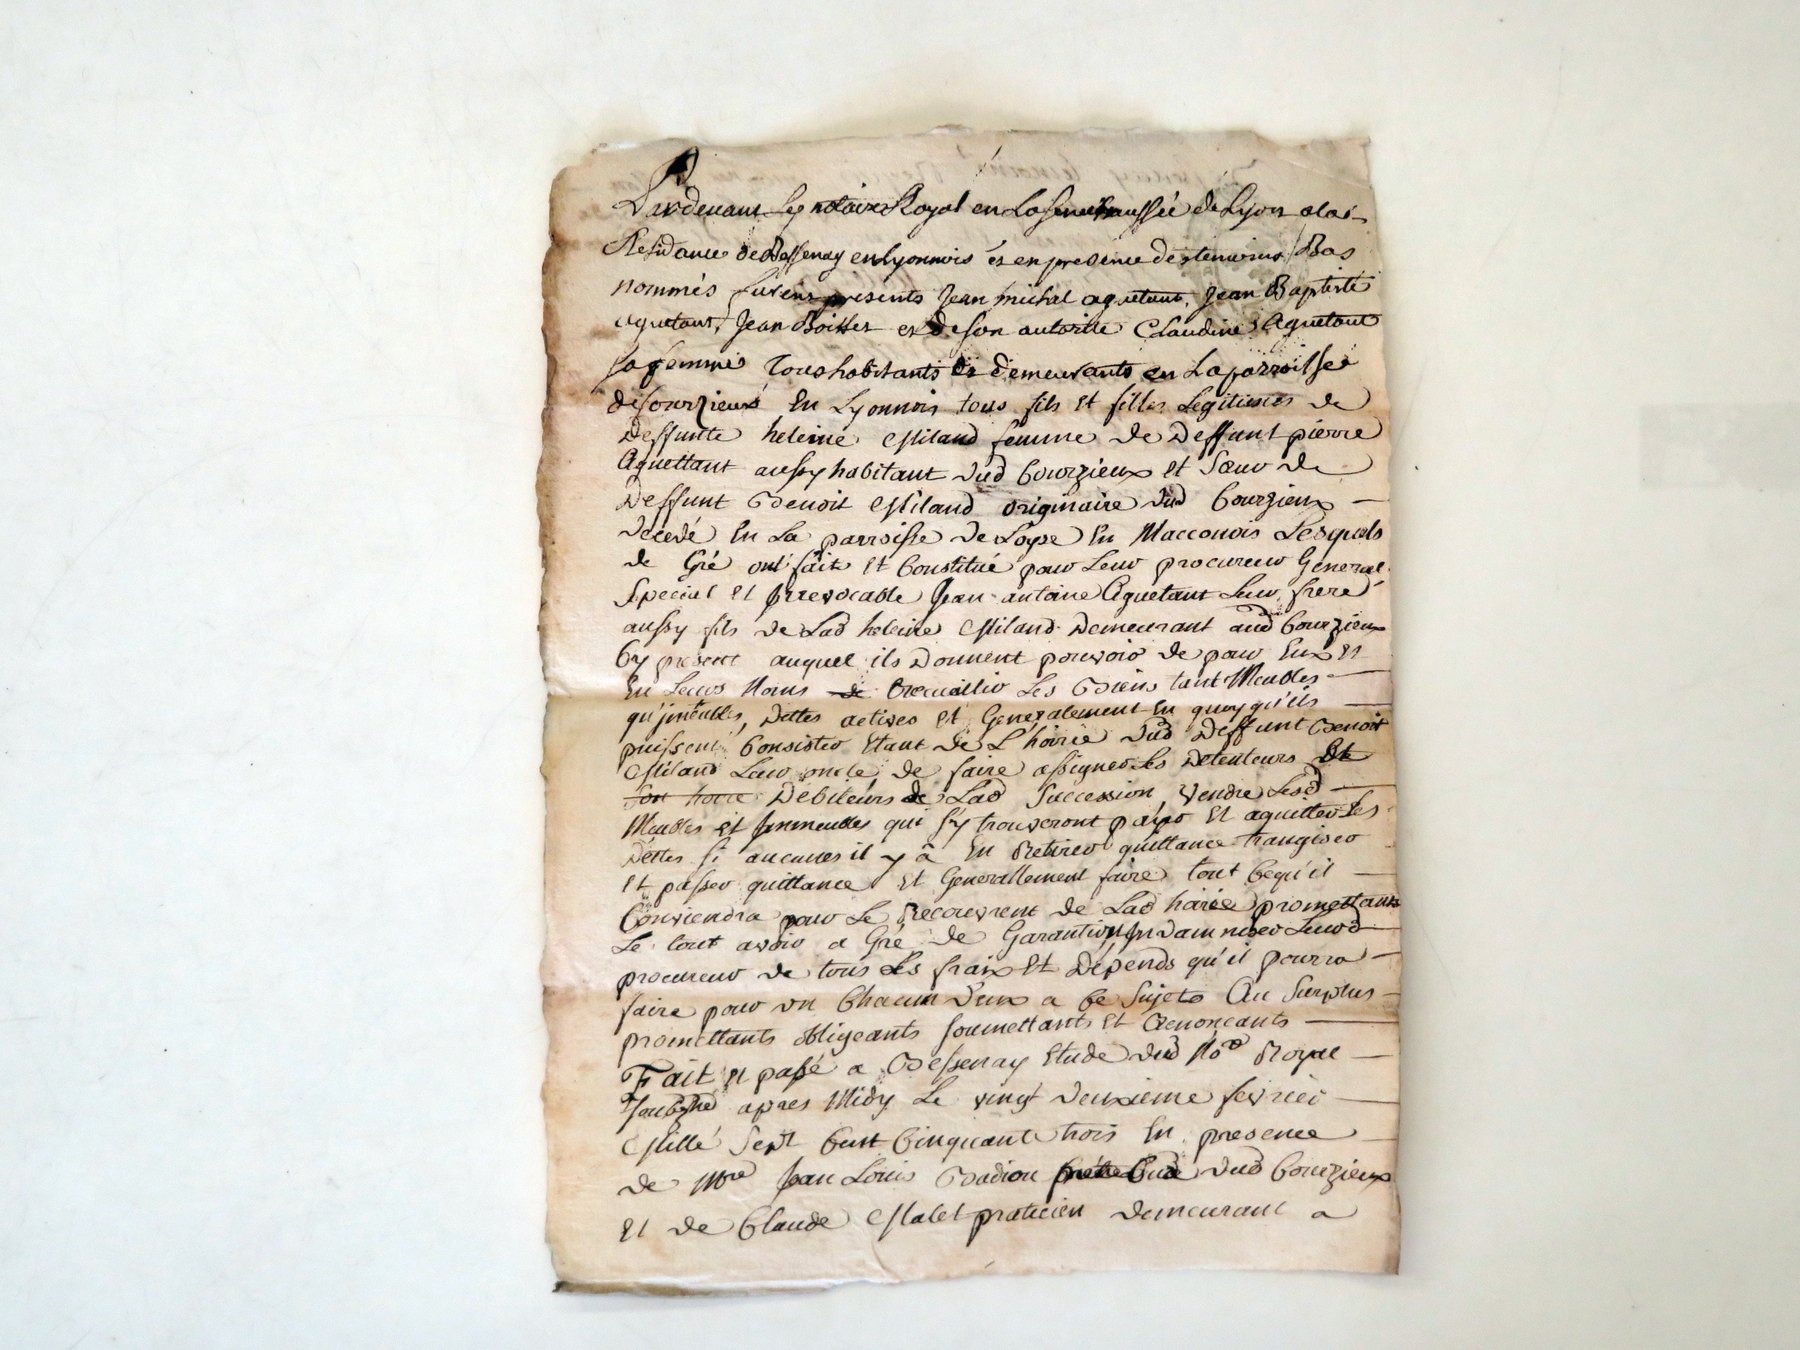 Pardevant Le notaire Royal en La senechaussée de Lyon alai
Residance de Bessenay en Lyonnois et en presence des temoins Bas
nommés furent presents Jean michel aguetant, Jean Baptiste
aguetant, Jean Boisset et de son autorité Claudine Aguetant
sa femme Tous habitants et demeurants en La parroisse
de Courzieux En Lyonnois tous fils Et filles Legitimes de
Deffunte heleine Miland femme de Deffunt pierre
Aguettant aussy habitant dud Courzieux Et Sœur de
Deffunt Benoit Miland originaire dud Courzieux
decedé En La parroisse de En Macconois Lesquels
de Gré ont fait Et Constitué pour Leur procureur General
Special Et Irrevocable Jean antoine Aguetant Leur frere
aussy fils de Lad heleine Miland Demeurant aud Courzieux
Cy present auquel ils Donnent pouvoir de pour Eux Et
En Leurs Noms de Recueillir Les Biens tant Meubles
qu'jmeubles, Dettes actives Et Generalement En quoy qu'ils
puissent Consister Etant de L'hoirie dud Deffunt Benoit
Miland Leur oncle, de faire assigner Les Detenteurs Et
Son hoirie Debiteurs de Lad Succession, Vendre Lesd
Meubles Et Immeubles qui s'y trouveront payer Et aquitter Les
Dettes si aucunes il y â En Retirer quittance trangiser
Et passer quittance Et Generallement faire tout Cequ'il
Conviendra pour Le Recouvrent de Lad hoirie promettans
Le tout avoir a Gré de Garantir Indamniser Leurd
procureur de tous Les fraix Et Dépends qu'il pourra
faire pour un Chacun d'eux a Ce Sujets Au Surplus
promettants obligeants soumettants Et Renonçants
Fait Et passé a Bessenay Etude dud No^re Royal
soubsné apres Midy Le vingt deuxieme fevrier
Mille Sept Cent Cinquante trois En presence
de M^re Jean Louis Badiou prêtre Curé dud Courzieux
Et de Claude Malet praticien demeurant a